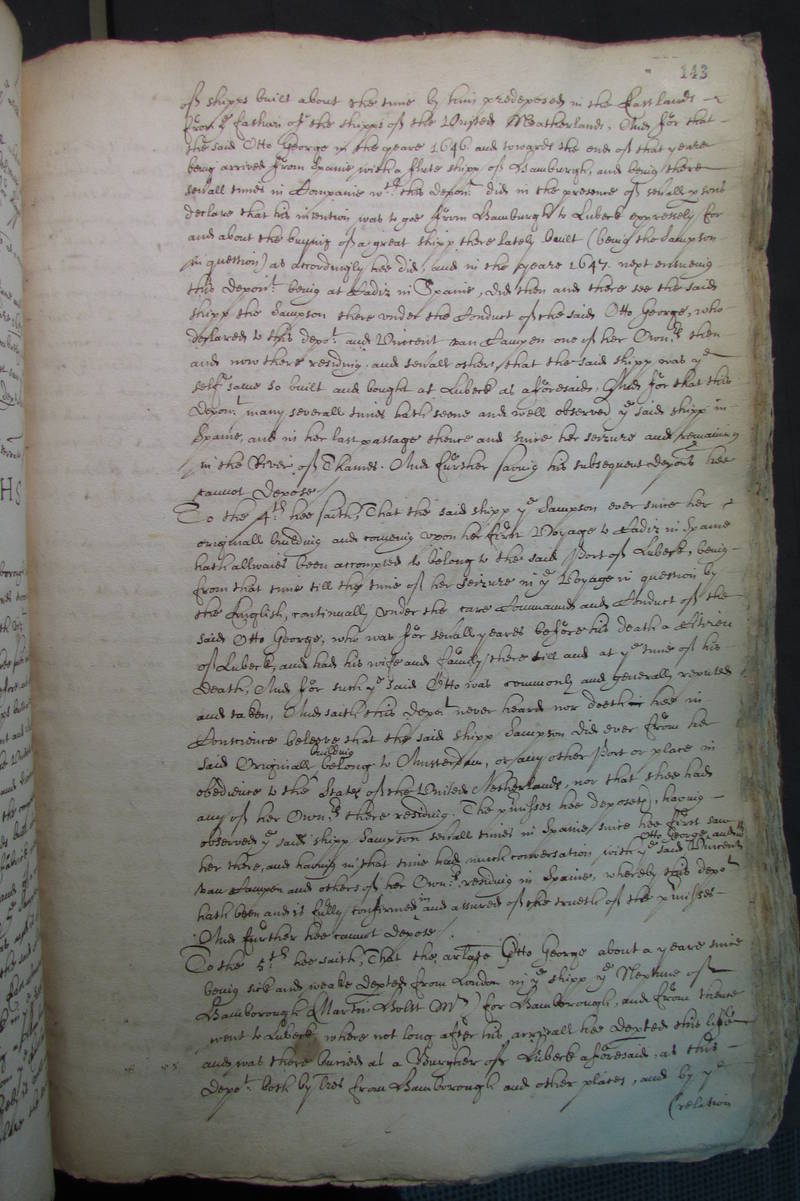 143
of shipps built about the time by him predeposed in the Eastlands
from ye fashion of the shipps of the United Neatherlands, And for that
the said Otto George in the yeare 1646 and towards the end of that yeare
being arrived from Spaine with a flute shipp of Hamburgh, and being there
severall times in Companie wth this Depont did in the presence of severall psons
declare that his intention was to goe from Hamburgh to Lubeck expressely for
and about the buying of a great shipp there lately built (being the Sampson
in question) as accordingly hee did, and in the yeare 1647. next ensueing
this Depont being at Cadiz in Spaine, did then and there see the said
shipp the Sampson there under the Conduct of the said Otto George, who
declared to this depot and Vincent van Campen one of her Ownrs then
and now there residing, and severall others, that the said shipp was ye
selfe same so built and bought at Lubeck as aforesaid, And for that this
Depont many severall times hath seene and well observed ye said shipp in
Spaine, and in her last passage thence and since her seizure and remaining
in the River of Thames. And further saving his subsequent deposns hee
cannot Depose
To the 4th hee saith, That the said shipp ye Sampson ever since her
originall building and comeing upon her first Voyage to Cadiz in Spaine
hath allwaies been accompted to belong to the said Port of Lubeck, being
from that time till the time of her seizure in ye Voyage in question by
the English, continually under the care Command and Conduct of the
said Otto George, who was for severall yeares before his death a Citizen
of Lubeck, and had his wife and family there still and at ye time of his
Death, And for such ye said Otto was commonly and generally reputed
and taken, And saith this depot never heard nor doeth hee in
Conscience beleeve that the said shipp Sampson did ever from her
building
said Originall belong to Amsterdam, or any other Port or place in
obedience to the States of the United Netherlands, nor that shee had
any of her Ownrs there residing. The pmisses hee deposeth, having
observed ye said shipp Sampson severall times in Spaine since hee first saw
Otto George, and
her there, and having in that time had much conversation with ye said Vincent
van Campen and others of her Ownrs residing in Spaine, whereby this depot
hath been and is fully confirmed in and assured of the trueth of the pmisses
And further hee cannot depose.
To the 5th hee saith, That the arlate Otto George about a yeare since
being sick and weake depted from London in ye shipp ye Neptune of
Hamborough (Martin Holst Mr) for Hamborough, and from thence
went to Lubeck, where not long after his arrivall hee depted this life
and was there buried as a Burgher of Lubeck aforesaid, as this
Depot both by lres from Hamborough and other places, and by ye
(relation